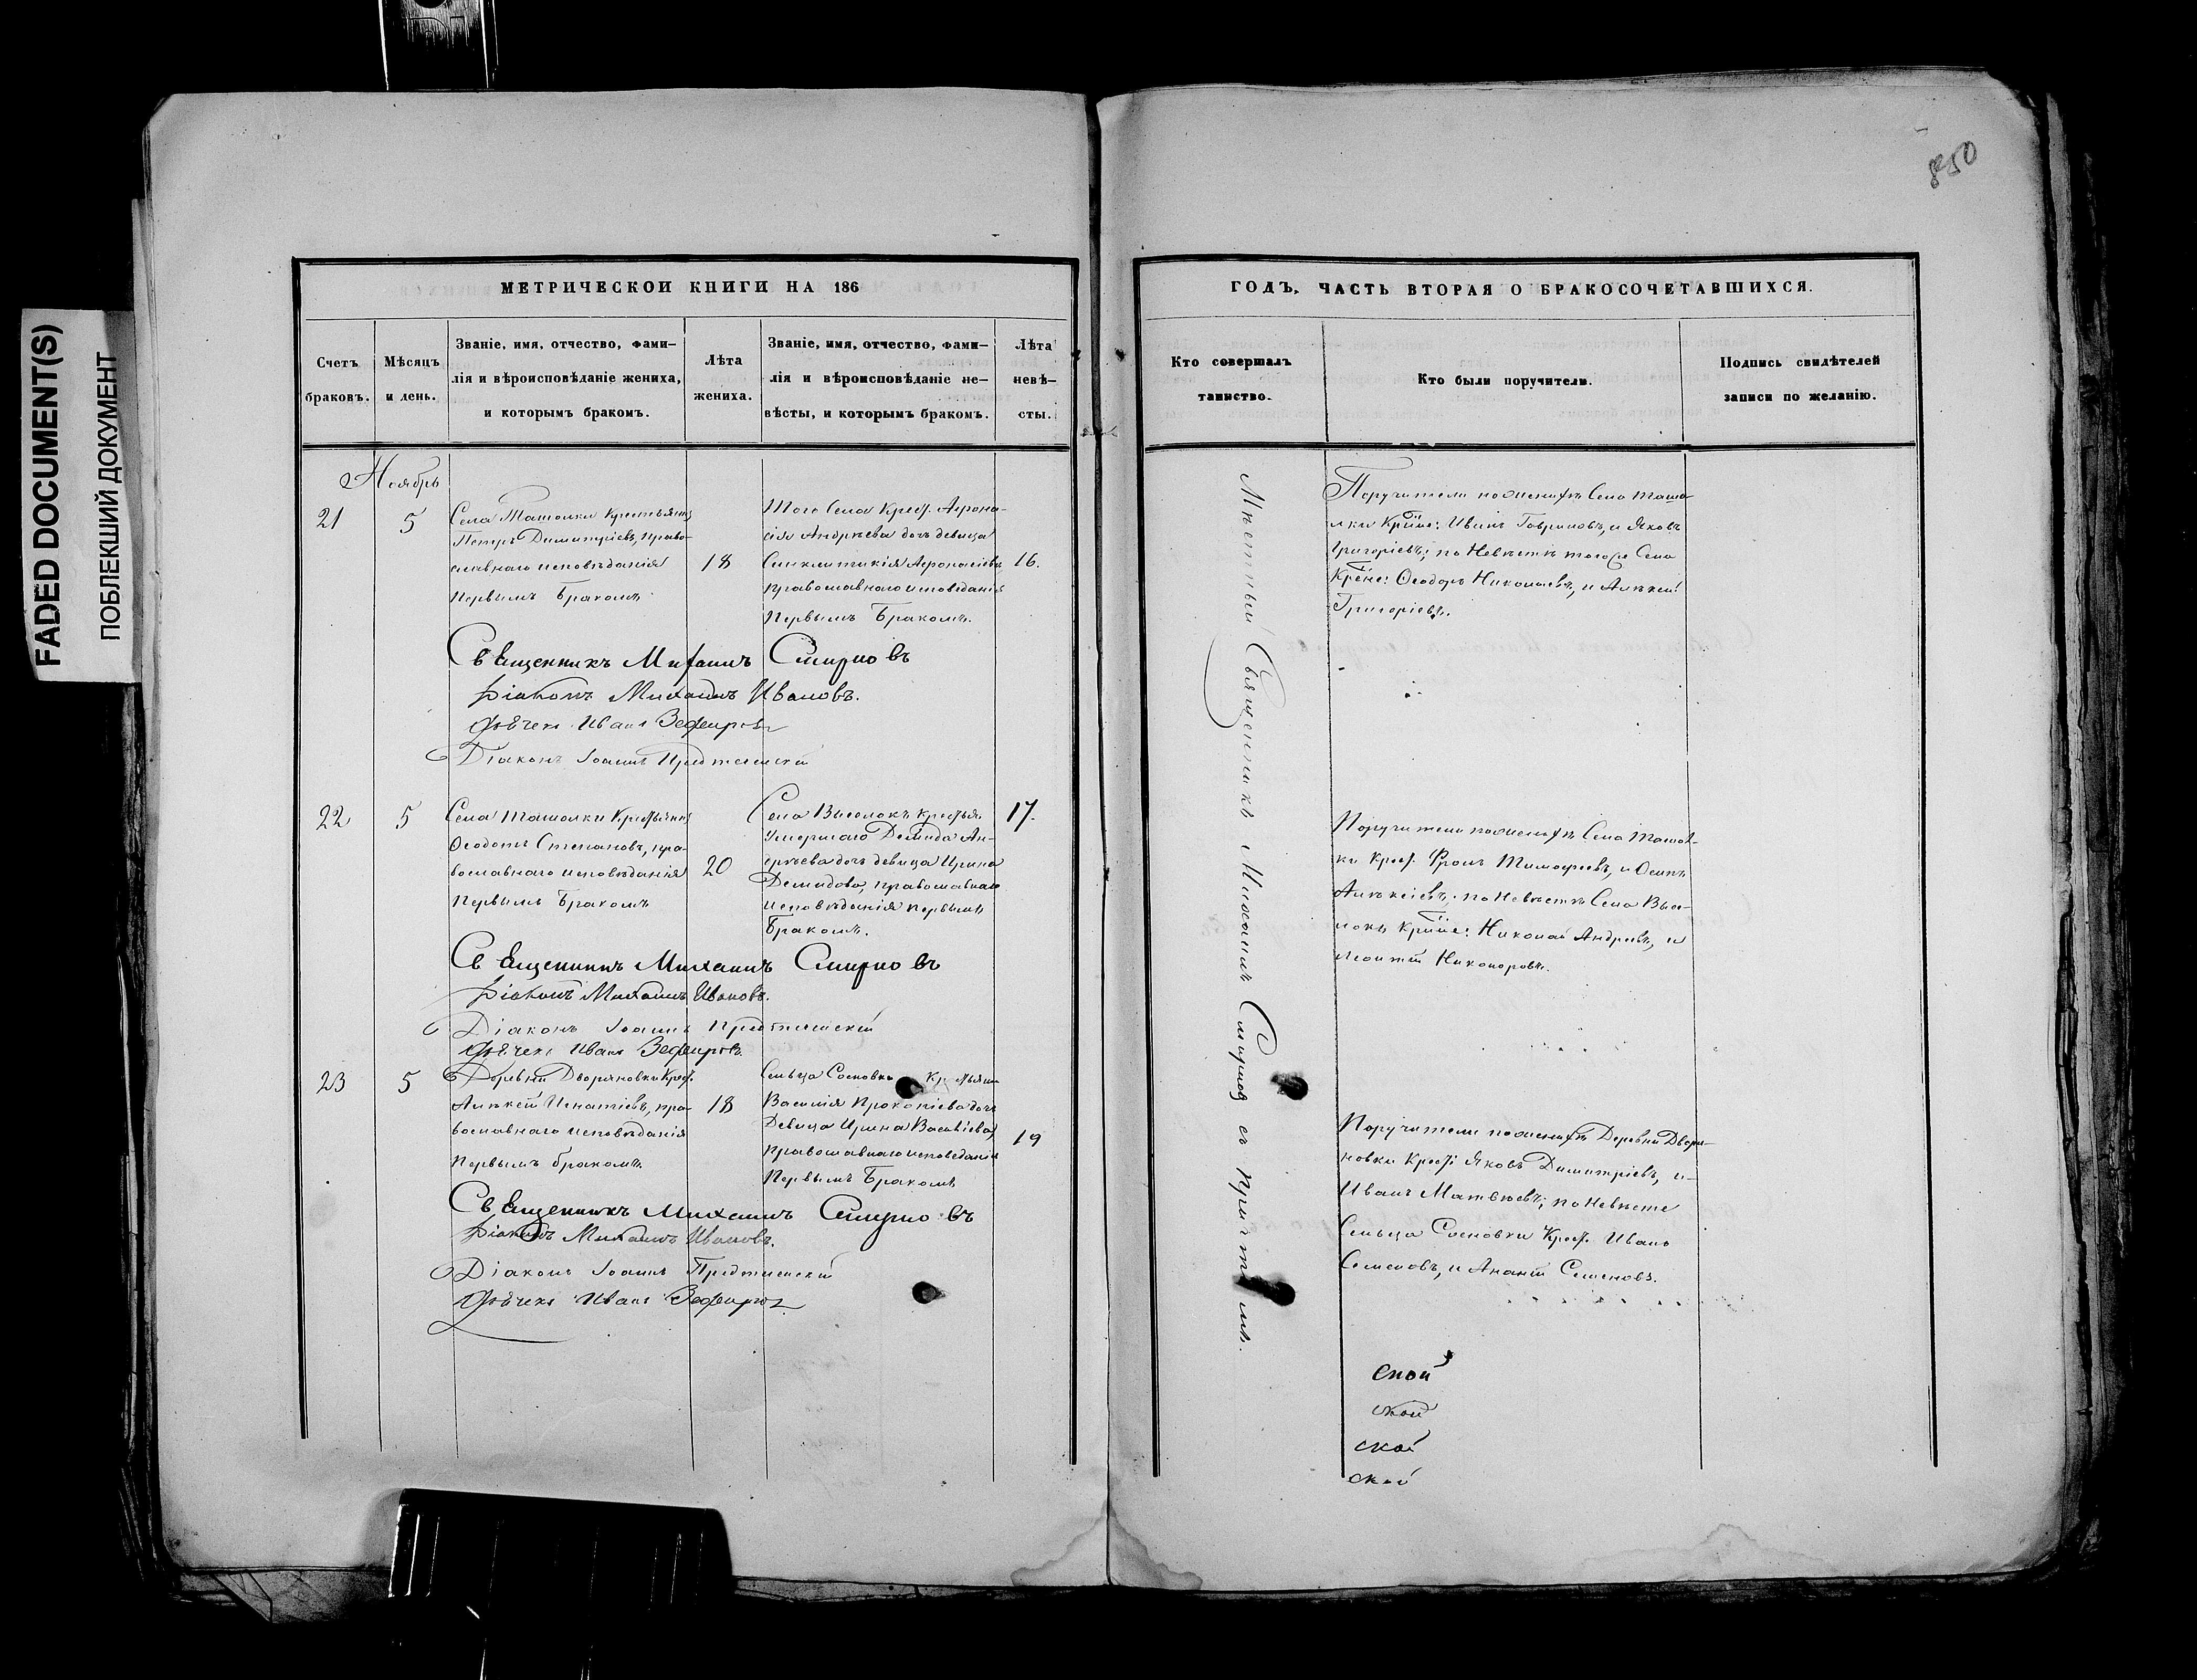 FADED DOCUMENT(S)
ПОБЛЕКШИЙ ДОКУМЕНТ
850
МЕТРИЧЕСКОИ КНИГИ НА 186
Счетъ
браковъ.
Мѣсяцъ
и день.
Званіе, имя, отчество, фами-
лія и вѣроисповѣданіе жениха,
и которымъ бракомъ.
Лѣта
жениха.
Званіе, имя, отчество, фами-
лія и вѣроисповѣданіе не-
вѣсты, и которымъ бракомъ.
Лѣта
невѣ-
сты.
Ноябрь
21
5
Села Ташолки Крестьянинъ
Петръ Димитріевъ, право-
славнаго исповѣданія
Первымъ Бракомъ
18
Того Села Крест.
сія Андрѣева дочь девица
Синклитикія
православнаго исповеданія
Первымъ Бракомъ.
16.
Священникъ Михаилъ Смирновъ
Діаконъ Михаилъ Ивановъ.
Дьячекъ Иванъ Зефировъ
Діаконъ Іоаннъ Предтеченскій
22
5
Села Ташолки Крестьянинъ
Ѳеодотъ Степановъ, пра-
вославнаго исповѣданія
Первымъ Бракомъ
20
Села Выселокъ Крестья
умершаго Демида Ан-
дрѣева дочь девица Ирина
Демидова, православнаго
исповѣданія первымъ
Бракомъ.
17.
Священникъ Михаилъ Смирновъ
Діаконъ Михаилъ Ивановъ.
Діаконъ Іоаннъ Предтеченскій
Дьячекъ Иванъ Зефировъ
23
5
Деревни Дворяновки Крест.
Алѣксей Игнатіевъ, пра-
вославнаго исповѣданія
Первымъ бракомъ.
18
Сельца Сосновки Крестьянина
Василія Прокопіева дочь
Девица Ирина Василіева
православнаго исповеданія
Первымъ Бракомъ
19
Священникъ Михаилъ Смирновъ
Діаконъ Михаилъ Ивановъ.
Діаконъ Іоаннъ Предтеченскій
Дьячекъ Иванъ Зефировъ
ГОДЪ, ЧАСТЬ ВТОРАЯ О БРАКОСОЧЕТАВШИХСЯ.
Кто совершалъ
таинство.
Кто были поручители.
Подпись свидѣтелей
записи по желанію.
Мѣстный Священникъ Михаилъ Смирновъ съ причтомъ.
Поручители по женихѣ Села Ташо-
лки Крѣне: Иванъ Гавриловъ, и Яковъ
Григоріевъ; по Невѣстѣ тогоже Села
Крѣне: Ѳеодоръ Николаевъ, и Алѣксей
Григоріевъ.
Поручители по женихѣ Села Ташол-
ки Крест. Фролъ Тимофеевъ, и Осипъ
Алѣксіевъ; по Невѣстѣ Села Высе-
локъ Крѣне: Николай Андреевъ, и
Леонтій Никоноровъ.
Поручители по женихѣ Деревни Дворя-
новки Крест: Яковъ Димитріевъ, и
Иванъ Матвѣевъ; по Невѣсте
Сельца Сосновки Крест. Иванъ
Семеновъ, и Ананій Семеновъ.
ской
ской
ской
ской